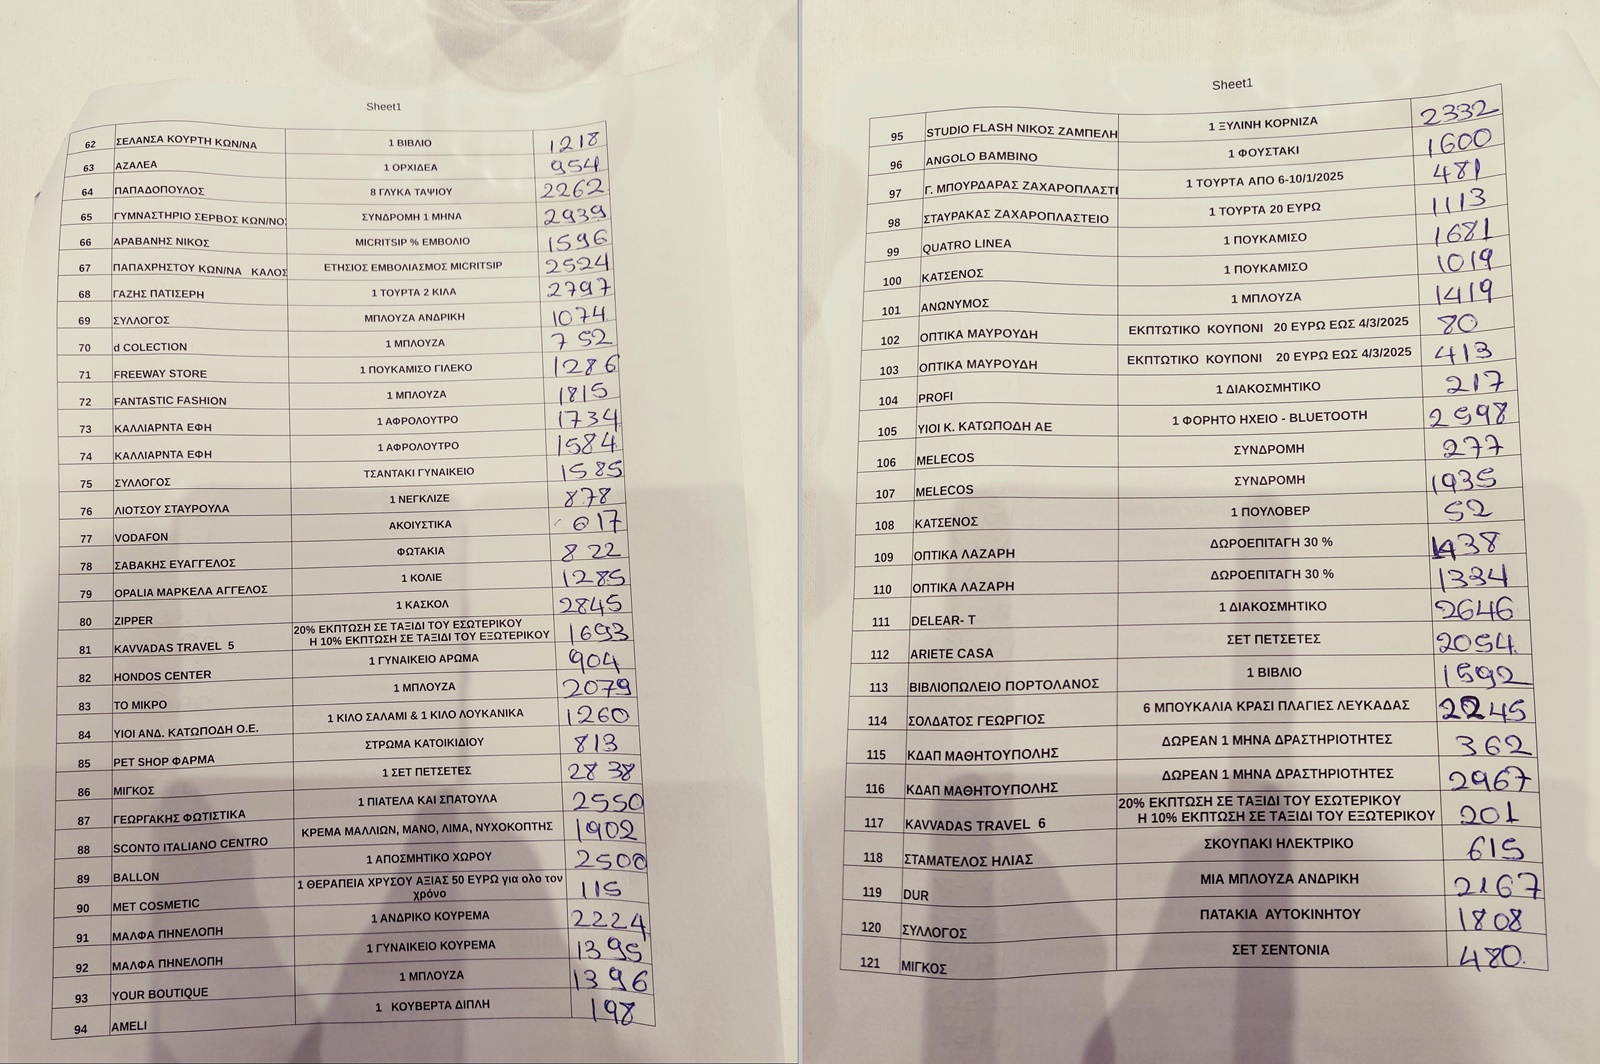 Sheet1
62 ΣΕΛΑΝΣΑ ΚΟΥΡΤΗ ΚΩΝ/ΝΑ 1 ΒΙΒΛΙΟ 1218
63 ΑΖΑΛΕΑ 1 ΟΡΧΙΔΕΑ 954
64 ΠΑΠΑΔΟΠΟΥΛΟΣ 8 ΓΛΥΚΑ ΤΑΨΙΟΥ 2262
65 ΓΥΜΝΑΣΤΗΡΙΟ ΣΕΡΒΟΣ ΚΩΝ/ΝΟΣ ΣΥΝΔΡΟΜΗ 1 ΜΗΝΑ 2939
66 ΑΡΑΒΑΝΗΣ ΝΙΚΟΣ MICRITSIP % ΕΜΒΟΛΙΟ 1596
67 ΠΑΠΑΧΡΗΣΤΟΥ ΚΩΝ/ΝΑ ΚΑΛΟΣ ΕΤΗΣΙΟΣ ΕΜΒΟΛΙΑΣΜΟΣ MICRITSIP 2524
68 ΓΑΖΗΣ ΠΑΤΙΣΕΡΗ 1 ΤΟΥΡΤΑ 2 ΚΙΛΑ 2797
69 ΣΥΛΛΟΓΟΣ ΜΠΛΟΥΖΑ ΑΝΔΡΙΚΗ 1074
70 d COLECTION 1 ΜΠΛΟΥΖΑ 752
71 FREEWAY STORE 1 ΠΟΥΚΑΜΙΣΟ ΓΙΛΕΚΟ 1286
72 FANTASTIC FASHION 1 ΜΠΛΟΥΖΑ 1815
73 ΚΑΛΛΙΑΡΝΤΑ ΕΦΗ 1 ΑΦΡΟΛΟΥΤΡΟ 1734
74 ΚΑΛΛΙΑΡΝΤΑ ΕΦΗ 1 ΑΦΡΟΛΟΥΤΡΟ 1584
75 ΣΥΛΛΟΓΟΣ ΤΣΑΝΤΑΚΙ ΓΥΝΑΙΚΕΙΟ 1585
76 ΛΙΟΤΣΟΥ ΣΤΑΥΡΟΥΛΑ 1 ΝΕΓΚΛΙΖΕ 878
77 VODAFON ΑΚΟΙΥΣΤΙΚΑ 617
78 ΣΑΒΑΚΗΣ ΕΥΑΓΓΕΛΟΣ ΦΩΤΑΚΙΑ 822
79 OPALIA ΜΑΡΚΕΛΑ ΑΓΓΕΛΟΣ 1 ΚΟΛΙΕ 1285
80 ZIPPER 1 ΚΑΣΚΟΛ 2845
81 KAVVADAS TRAVEL 5 20% ΕΚΠΤΩΣΗ ΣΕ ΤΑΞΙΔΙ ΤΟΥ ΕΣΩΤΕΡΙΚΟΥ
Η 10% ΕΚΠΤΩΣΗ ΣΕ ΤΑΞΙΔΙ ΤΟΥ ΕΞΩΤΕΡΙΚΟΥ 1693
82 HONDOS CENTER 1 ΓΥΝΑΙΚΕΙΟ ΑΡΩΜΑ 904
83 ΤΟ ΜΙΚΡΟ 1 ΜΠΛΟΥΖΑ 2079
84 ΥΙΟΙ ΑΝΔ. ΚΑΤΩΠΟΔΗ Ο.Ε. 1 ΚΙΛΟ ΣΑΛΑΜΙ & 1 ΚΙΛΟ ΛΟΥΚΑΝΙΚΑ 1260
85 PET SHOP ΦΑΡΜΑ ΣΤΡΩΜΑ ΚΑΤΟΙΚΙΔΙΟΥ 813
86 ΜΙΓΚΟΣ 1 ΣΕΤ ΠΕΤΣΕΤΕΣ 2838
87 ΓΕΩΡΓΑΚΗΣ ΦΩΤΙΣΤΙΚΑ 1 ΠΙΑΤΕΛΑ ΚΑΙ ΣΠΑΤΟΥΛΑ 2550
88 SCONTO ITALIANO CENTRO ΚΡΕΜΑ ΜΑΛΛΙΩΝ, ΜΑΝΟ, ΛΙΜΑ, ΝΥΧΟΚΟΠΤΗΣ 1902
89 BALLON 1 ΑΠΟΣΜΗΤΙΚΟ ΧΩΡΟΥ 2500
90 MET COSMETIC 1 ΘΕΡΑΠΕΙΑ ΧΡΥΣΟΥ ΑΞΙΑΣ 50 ΕΥΡΩ για ολο τον
χρόνο 115
91 ΜΑΛΦΑ ΠΗΝΕΛΟΠΗ 1 ΑΝΔΡΙΚΟ ΚΟΥΡΕΜΑ 2224
92 ΜΑΛΦΑ ΠΗΝΕΛΟΠΗ 1 ΓΥΝΑΙΚΕΙΟ ΚΟΥΡΕΜΑ 1395
93 YOUR BOUTIQUE 1 ΜΠΛΟΥΖΑ 1396
94 AMELI 1 ΚΟΥΒΕΡΤΑ ΔΙΠΛΗ 198
Sheet1
95 STUDIO FLASH ΝΙΚΟΣ ΖΑΜΠΕΛΗ 1 ΞΥΛΙΝΗ ΚΟΡΝΙΖΑ 2332
96 ANGOLO BAMBINO 1 ΦΟΥΣΤΑΚΙ 1600
97 Γ. ΜΠΟΥΡΔΑΡΑΣ ΖΑΧΑΡΟΠΛΑΣΤΙ 1 ΤΟΥΡΤΑ ΑΠΟ 6-10/1/2025 481
98 ΣΤΑΥΡΑΚΑΣ ΖΑΧΑΡΟΠΛΑΣΤΕΙΟ 1 ΤΟΥΡΤΑ 20 ΕΥΡΩ 1113
99 QUATRO LINEA 1 ΠΟΥΚΑΜΙΣΟ 1681
100 ΚΑΤΣΕΝΟΣ 1 ΠΟΥΚΑΜΙΣΟ 1019
101 ΑΝΩΝΥΜΟΣ 1 ΜΠΛΟΥΖΑ 1419
102 ΟΠΤΙΚΑ ΜΑΥΡΟΥΔΗ ΕΚΠΤΩΤΙΚΟ ΚΟΥΠΟΝΙ 20 ΕΥΡΩ ΕΩΣ 4/3/2025 80
103 ΟΠΤΙΚΑ ΜΑΥΡΟΥΔΗ ΕΚΠΤΩΤΙΚΟ ΚΟΥΠΟΝΙ 20 ΕΥΡΩ ΕΩΣ 4/3/2025 413
104 PROFI 1 ΔΙΑΚΟΣΜΗΤΙΚΟ 217
105 ΥΙΟΙ Κ. ΚΑΤΩΠΟΔΗ ΑΕ 1 ΦΟΡΗΤΟ ΗΧΕΙΟ - BLUETOOTH 2598
106 MELECOS ΣΥΝΔΡΟΜΗ 277
107 MELECOS ΣΥΝΔΡΟΜΗ 1935
108 ΚΑΤΣΕΝΟΣ 1 ΠΟΥΛΟΒΕΡ 52
109 ΟΠΤΙΚΑ ΛΑΖΑΡΗ ΔΩΡΟΕΠΙΤΑΓΗ 30 % 1438
110 ΟΠΤΙΚΑ ΛΑΖΑΡΗ ΔΩΡΟΕΠΙΤΑΓΗ 30 % 1334
111 DELEAR- T 1 ΔΙΑΚΟΣΜΗΤΙΚΟ 2646
112 ARIETE CASA ΣΕΤ ΠΕΤΣΕΤΕΣ 2054
113 ΒΙΒΛΙΟΠΩΛΕΙΟ ΠΟΡΤΟΛΑΝΟΣ 1 ΒΙΒΛΙΟ 1592
114 ΣΟΛΔΑΤΟΣ ΓΕΩΡΓΙΟΣ 6 ΜΠΟΥΚΑΛΙΑ ΚΡΑΣΙ ΠΛΑΓΙΕΣ ΛΕΥΚΑΔΑΣ 2245
115 ΚΔΑΠ ΜΑΘΗΤΟΥΠΟΛΗΣ ΔΩΡΕΑΝ 1 ΜΗΝΑ ΔΡΑΣΤΗΡΙΟΤΗΤΕΣ 362
116 ΚΔΑΠ ΜΑΘΗΤΟΥΠΟΛΗΣ ΔΩΡΕΑΝ 1 ΜΗΝΑ ΔΡΑΣΤΗΡΙΟΤΗΤΕΣ 2967
117 KAVVADAS TRAVEL 6 20% ΕΚΠΤΩΣΗ ΣΕ ΤΑΞΙΔΙ ΤΟΥ ΕΣΩΤΕΡΙΚΟΥ
Η 10% ΕΚΠΤΩΣΗ ΣΕ ΤΑΞΙΔΙ ΤΟΥ ΕΞΩΤΕΡΙΚΟΥ 201
118 ΣΤΑΜΑΤΕΛΟΣ ΗΛΙΑΣ ΣΚΟΥΠΑΚΙ ΗΛΕΚΤΡΙΚΟ 615
119 DUR ΜΙΑ ΜΠΛΟΥΖΑ ΑΝΔΡΙΚΗ 2167
120 ΣΥΛΛΟΓΟΣ ΠΑΤΑΚΙΑ ΑΥΤΟΚΙΝΗΤΟΥ 1808
121 ΜΙΓΚΟΣ ΣΕΤ ΣΕΝΤΟΝΙΑ 480